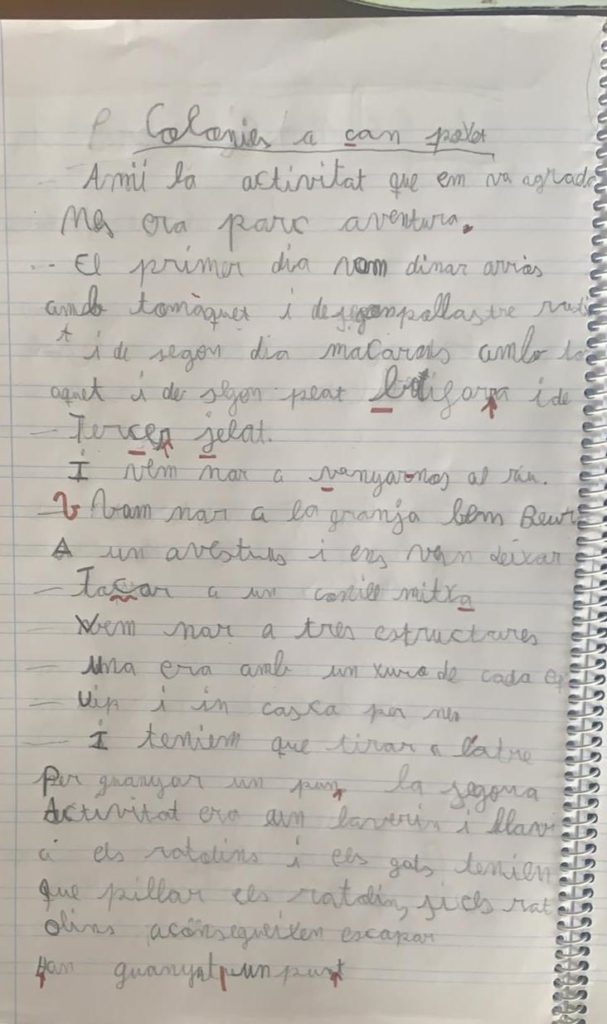 Colonies a can
Amii la activitat que em va agrada
Mes era parc aventura.
El primer dia vam dinar arròs
amb tomàquet i de segon pollastre
t i de segon dia macarons amb to
aquet i de sgon peat botifarra i de
Tercer jelat.
I vem nar a vanyarnos al riu.
Vam nar a la granja bem Beure
A un avestrus i ens van deixar
Tacar a un conill mitxa
Vem nar a tres estructures
Una era amb un xuro de cada eq
uip i in casxa per mes
I teniem que tirar a l'atre
Per guanyar un pun, la segona
Activitat era un laverin i llavi
a els ratolins i els gats tenien
que pillar els ratolin, si els rat
olins aconsegueixen escapar
Han guanyat un punt